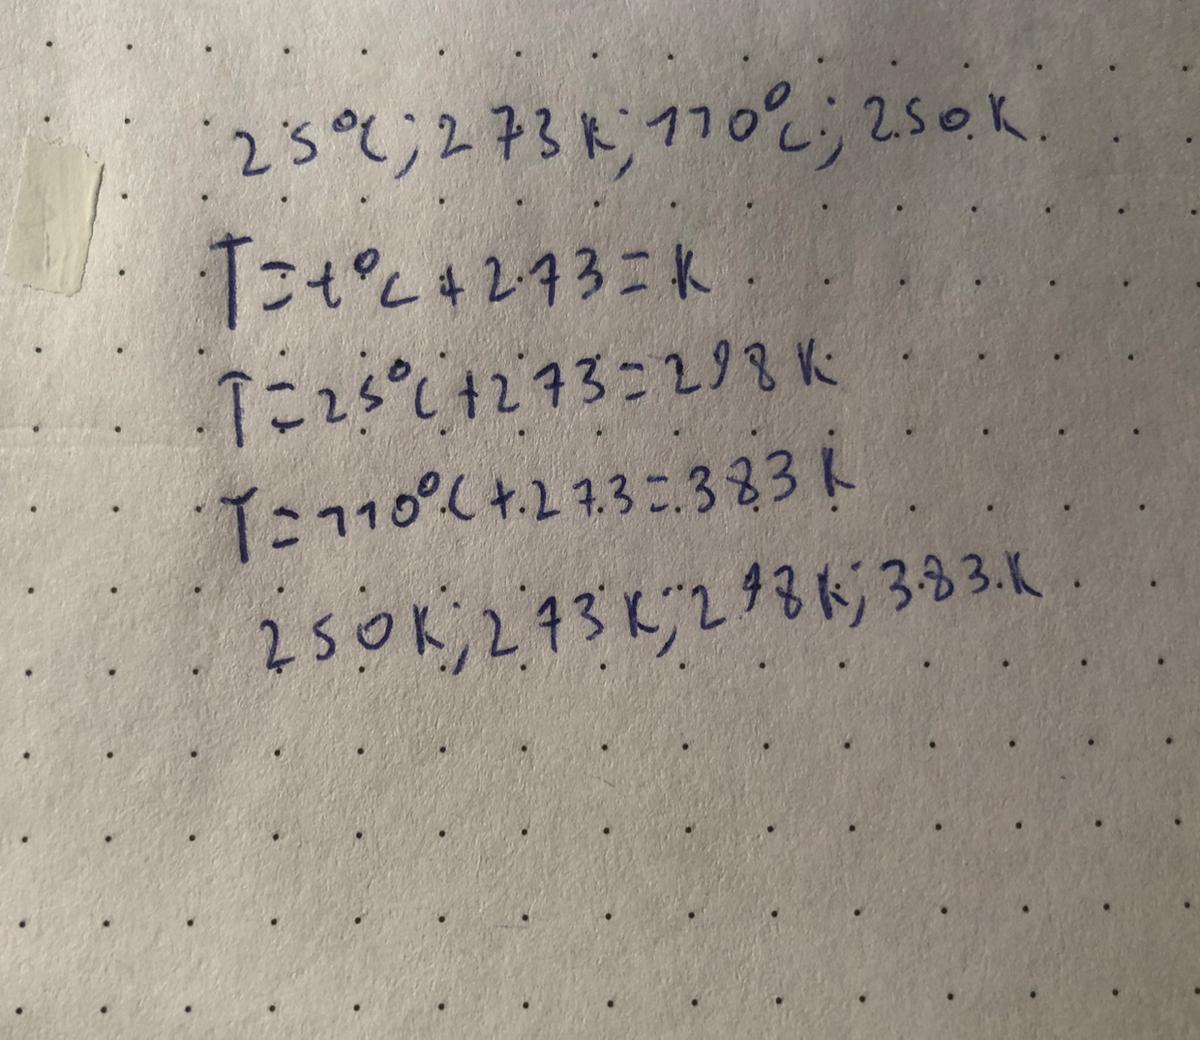 25°C; 273 K; 110°C; 250 K
T = t°C + 273 = K
T = 25°C + 273 = 298 K
T = 110°C + 273 = 383 K
250 K; 273 K; 298 K; 383 K